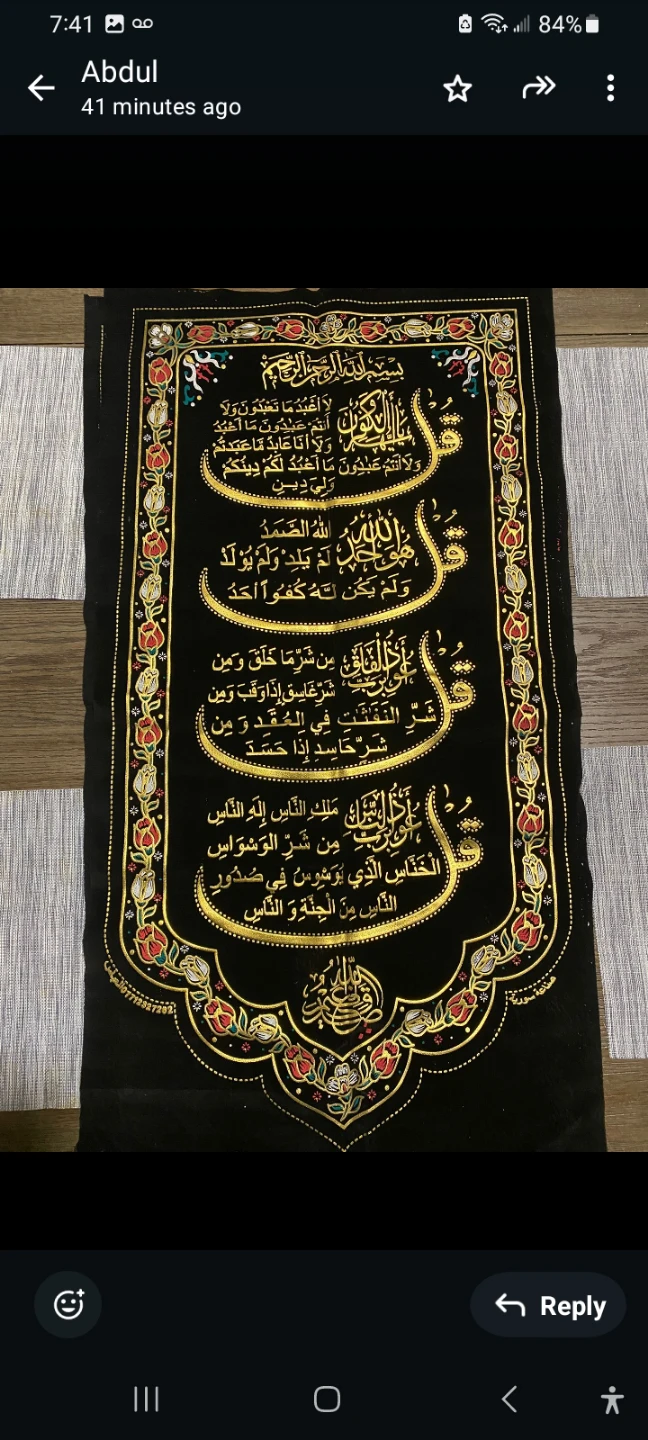 7:41
84%
Abdul
41 minutes ago
بسم الله الرحمن الرحيم
قل يا أيها الكافرون لا أعبد ما تعبدون ولا
أنتم عبدون ما أعبد
ولا أنا عابد ما عبدتم
ولا أنتم عبدون ما أعبد لكم دينكم
ولي دين
قل هو الله أحد الله الصمد
لم يلد ولم يولد
ولم يكن له كفوا أحد
قل أعوذ برب الفلق من شر ما خلق ومن
شر غاسق إذا وقب ومن
شر النفثت في العقد و من
شر حاسد إذا حسد
قل أعوذ برب الناس ملك الناس إله الناس
من شر الوسواس
الخناس الذي يوسوس في صدور
الناس من الجنة و الناس
صدق الله العظيم
صناعة سورية
Reply